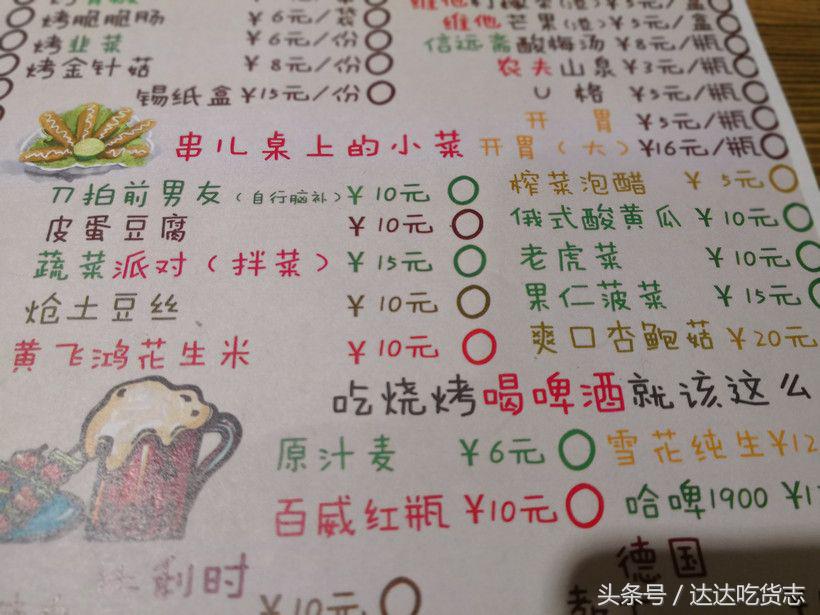 烤脆脆肠 ¥6元/袋
烤韭菜 ¥6元/份
烤金针菇 ¥8元/份
锡纸盒 ¥15元/份
维他芒果(渣) ¥5元/盒
信远斋酸梅汤 ¥8元/瓶
农夫山泉 ¥3元/瓶
U格 ¥5元/瓶
开胃 ¥5元/瓶
开胃(大) ¥16元/瓶
串儿桌上的小菜
刀拍前男友(自行脑补) ¥10元
皮蛋豆腐 ¥10元
蔬菜派对(拌菜) ¥15元
炝土豆丝 ¥10元
黄飞鸿花生米 ¥10元
榨菜泡醋 ¥5元
俄式酸黄瓜 ¥10元
老虎菜 ¥10元
果仁菠菜 ¥15元
爽口杏鲍菇 ¥20元
吃烧烤喝啤酒就该这么
原汁麦 ¥6元
雪花纯生 ¥12
百威红瓶 ¥10元
哈啤1900 ¥1
德国
¥10元
头条号/达达吃货志